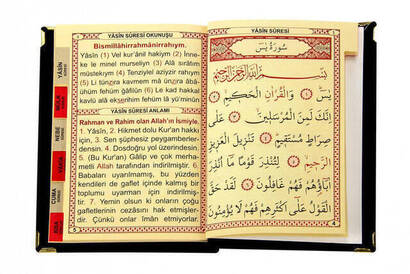 YÂSÎN SÛRESİ OKUNUŞU
Bismillâhirrahmânirrahym.
(1) Vel kur'ânil hakiym (2) İnne-
ke le minel murseliyn (3) Alâ sırâtım
müstekıym (4) Tenziylel aziyzir rahıym
(5) Li tünzira kavmem mâ ünzira âbâ-
ühüm fehüm ğâfilûn (6) Le kad hakkal
kavlü alâ ekserihim fehüm lâ yü'minûn
YÂSÎN SÛRESİ ANLAMI
Rahman ve Rahim olan Allah'ın İsmiyle.
1. Yâsîn, 2. Hikmet dolu Kur'an hakkı
için, 3. Sen şüphesiz peygamberler-
densin. 4. Dosdoğru yol üzerindesin.
5. (Bu Kur'an) Gâlip ve çok merha-
metli Allah tarafından indirilmiştir. 6.
Babaları uyarılmamış, bu yüzden
kendileri de gaflet içinde kalmış bir
toplumu uyarman için indirilmiş-
tir. 7. Yemin olsun ki onların çoğu
gafletlerinin cezasını hak etmişler-
dir. Çünkü onlar İmân etmiyorlar.
5
YÂSÎN
MÜLK
NEBE
CUMA
YÂSÎN SÛRESİ
سُورَةُ يٰسٓ
بِسْمِ اللّٰهِ الرَّحْمٰنِ الرَّحِيمِ
يٰسٓ ﴿١﴾ وَالْقُرْاٰنِ الْحَكِيمِ ﴿٢﴾
اِنَّكَ لَمِنَ الْمُرْسَلِينَ ﴿٣﴾ عَلٰى
صِرَاطٍ مُسْتَقِيمٍ ﴿٤﴾ تَنْزِيلَ الْعَزِيزِ
الرَّحِيمِ ﴿٥﴾ لِتُنْذِرَ قَوْمًا مَا اُنْذِرَ
اٰبَاؤُهُمْ فَهُمْ غَافِلُونَ ﴿٦﴾ لَقَدْ حَقَّ
الْقَوْلُ عَلٰى اَكْثَرِهِمْ فَهُمْ لَا يُؤْمِنُونَ
4